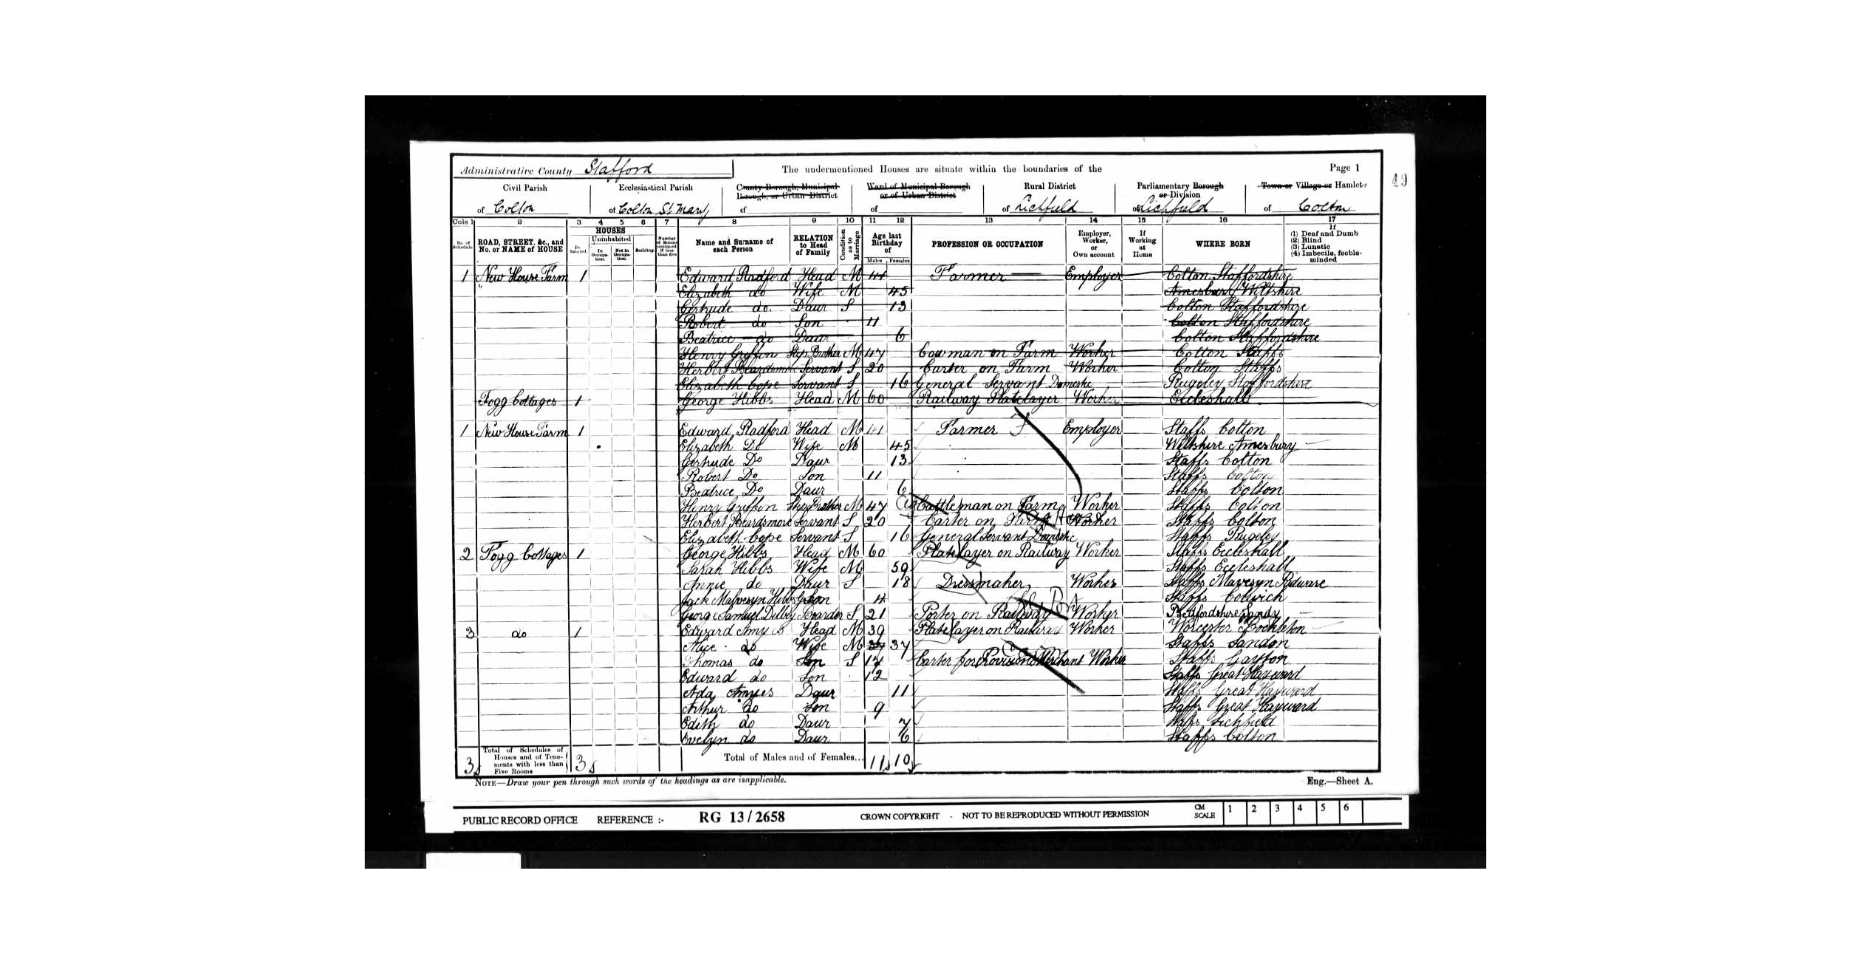 Administrative County Stafford
The undermentioned Houses are situate within the boundaries of the
Page 1
49
Civil Parish of Colton
Ecclesiastical Parish of Colton St Mary
County Borough, Municipal Borough, or Urban District of
Ward of Municipal Borough or of Urban District of
Rural District of Lichfield
Parliamentary Borough or Division of Lichfield
Town or Village or Hamlet of Colton
Cols 1 2 3 4 5 6 7 8 9 10 11 12 13 14 15 16 17
No. of Schedule
ROAD, STREET, &c., and No. or NAME of HOUSE
HOUSES
Inhabited
Uninhabited
In Occupation.
Not in Occupation.
Building
Name and Surname of each Person
RELATION to Head of Family
Condition as to Marriage
Age last Birthday of
Males Females
PROFESSION OR OCCUPATION
Employer, Worker, or Own account
If Working at Home
WHERE BORN
If
(1) Deaf and Dumb
(2) Blind
(3) Lunatic
(4) Imbecile, feeble-minded
1 New House Farm 1 Edward Radford Head M 44 Farmer Employer Colton Staffordshire
Elizabeth do Wife M 45 Amesbury Wiltshire
Gertrude do. Daur S 13 Colton Staffordshire
Robert do Son 11 Colton Staffordshire
Beatrice do Daur 6 Colton Staffordshire
Henry Griffin Step Brother M 47 Cowman on Farm Worker Colton Staffs
Herbert Beardsmore Servant S 20 Carter on Farm Worker Colton Staffs
Elizabeth Cope Servant S 16 General Servant Domestic Rugeley Staffordshire
Fogg Cottages 1 George Hibbs Head M 60 Railway Platelayer Worker Eccleshall
1 New House Farm 1 Edward Radford Head M 41 Farmer Employer Staffs Colton
Elizabeth Do Wife M 45 Wiltshire Amesbury
Gertrude Do Daur 13 Staffs Colton
Robert Do Son 11 Staffs Colton
Beatrice Do Daur 6 Staffs Colton
Henry Griffin Step Brother M 47 Cattleman on Farm Worker Staffs Colton
Herbert Beardsmore Servant S 20 Carter on Farm Worker Staffs Colton
Elizabeth Cope Servant S 16 General Servant Domestic Staffs Rugeley
2 Fogg Cottages 1 George Hibbs Head M 60 Platelayer on Railway Worker Staffs Eccleshall
Sarah Hibbs Wife M 59 Staffs Eccleshall
Annie do Daur S 18 Dressmaker Worker Staffs Mavesyn Ridware
Jack Hibbs 4 Staffs Colwich
George Samuel Boarder S 21 Porter on Railway Worker Bedfordshire Sandy
3 do 1 Edward Head M 39 Platelayer on Railway Worker Worcester
Alice do Wife M 37 Staffs Sandon
Thomas do Son S 14 Carter for Provision Merchant Worker Staffs
Edward do Son 12 Staffs Great Haywood
Ada Daur 11 Staffs Great Haywood
Arthur do Son 9 Staffs Great Haywood
Edith do Daur 7 Staffs Lichfield
Evelyn do Daur 6 Staffs Colton
3 Total of Schedules of Houses and of Tenements with less than Five Rooms 3 Total of Males and of Females... 11 10
NOTE—Draw your pen through such words of the headings as are inapplicable.
Eng.—Sheet A.
PUBLIC RECORD OFFICE REFERENCE :- RG 13/2658 CROWN COPYRIGHT - NOT TO BE REPRODUCED WITHOUT PERMISSION CM SCALE 1 2 3 4 5 6